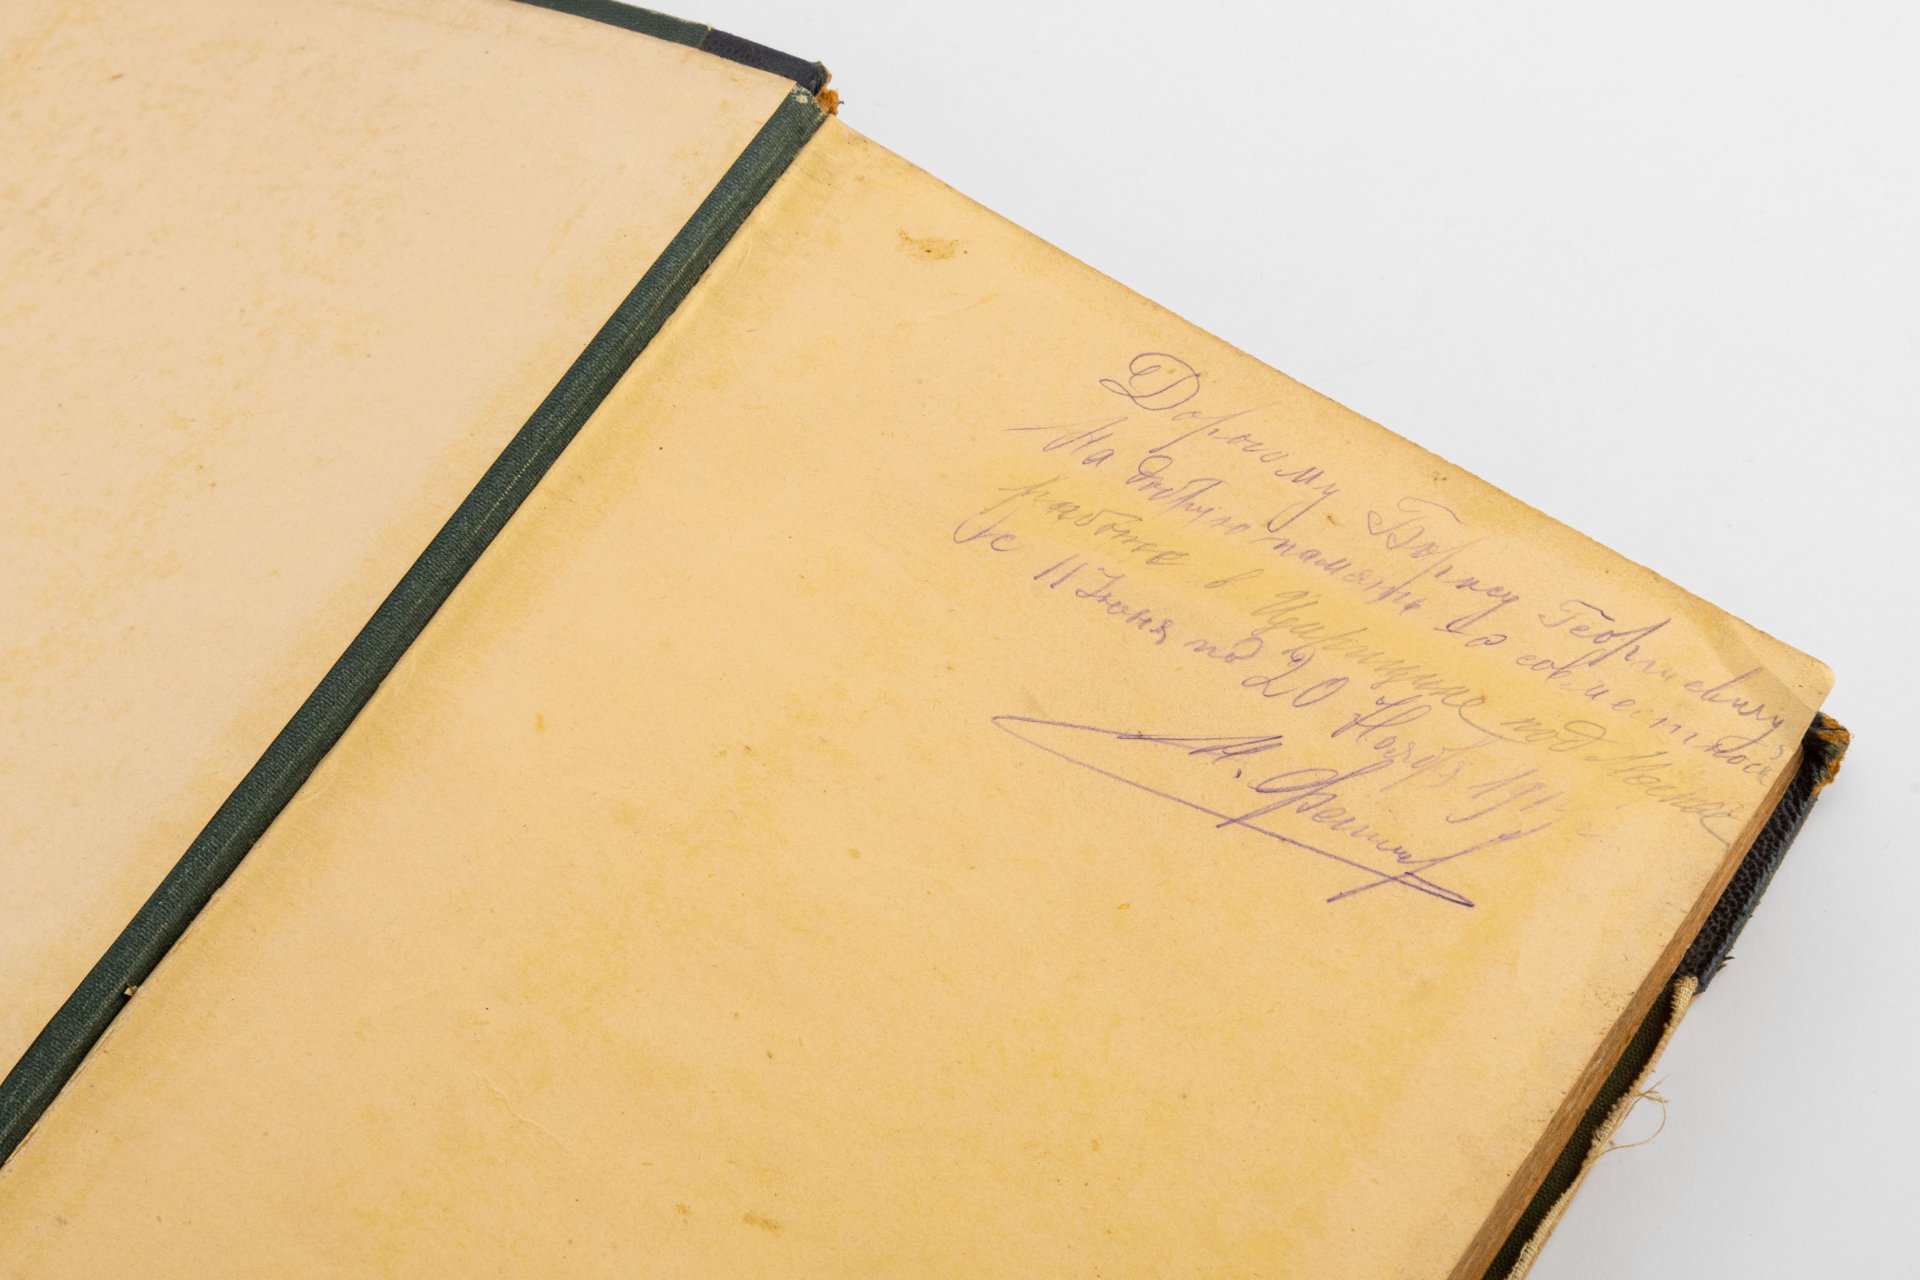 Дорогому Борису Георгиевичу
На добрую память о совместной
работе в Царицыне под Москвой
с 11 Июня по 20 Ноября